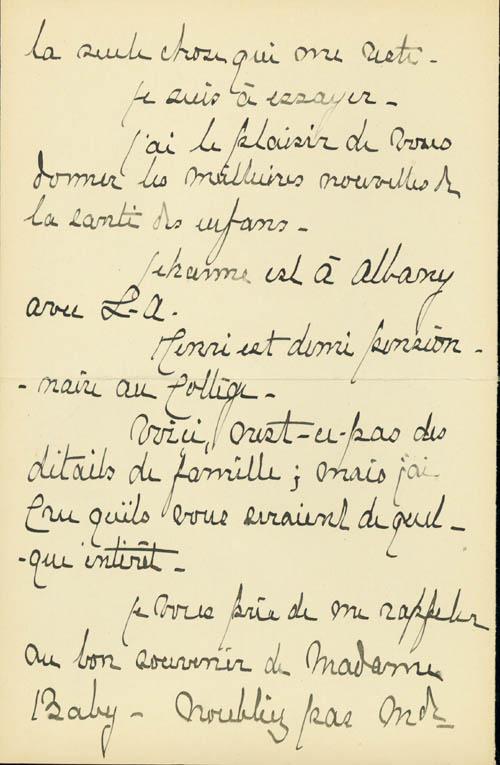 la seule chose qui me reste -
je suis à essayer -
j'ai le plaisir de vous
donner les meilleures nouvelles de
la santé des enfans -
Jehanne est à Albany
avec L-A.
Henri est demi pension -
- naire au Collège -
Voici, n'est-ce-pas des
détails de famille ; mais j'ai
cru qu'ils vous seraient de quel -
- que intérêt -
je vous prie de me rappeler
au bon souvenir de Madame
Baby - N'oubliez pas Mde